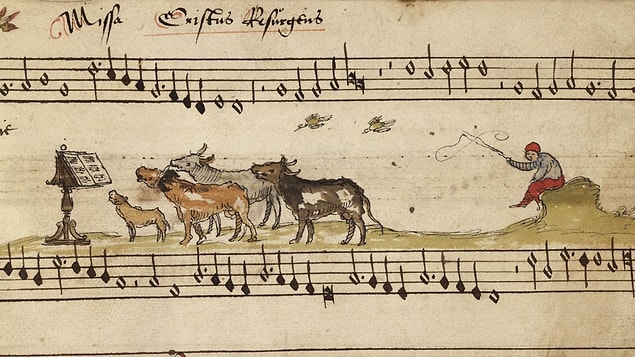 Missa Cristus Resurgens